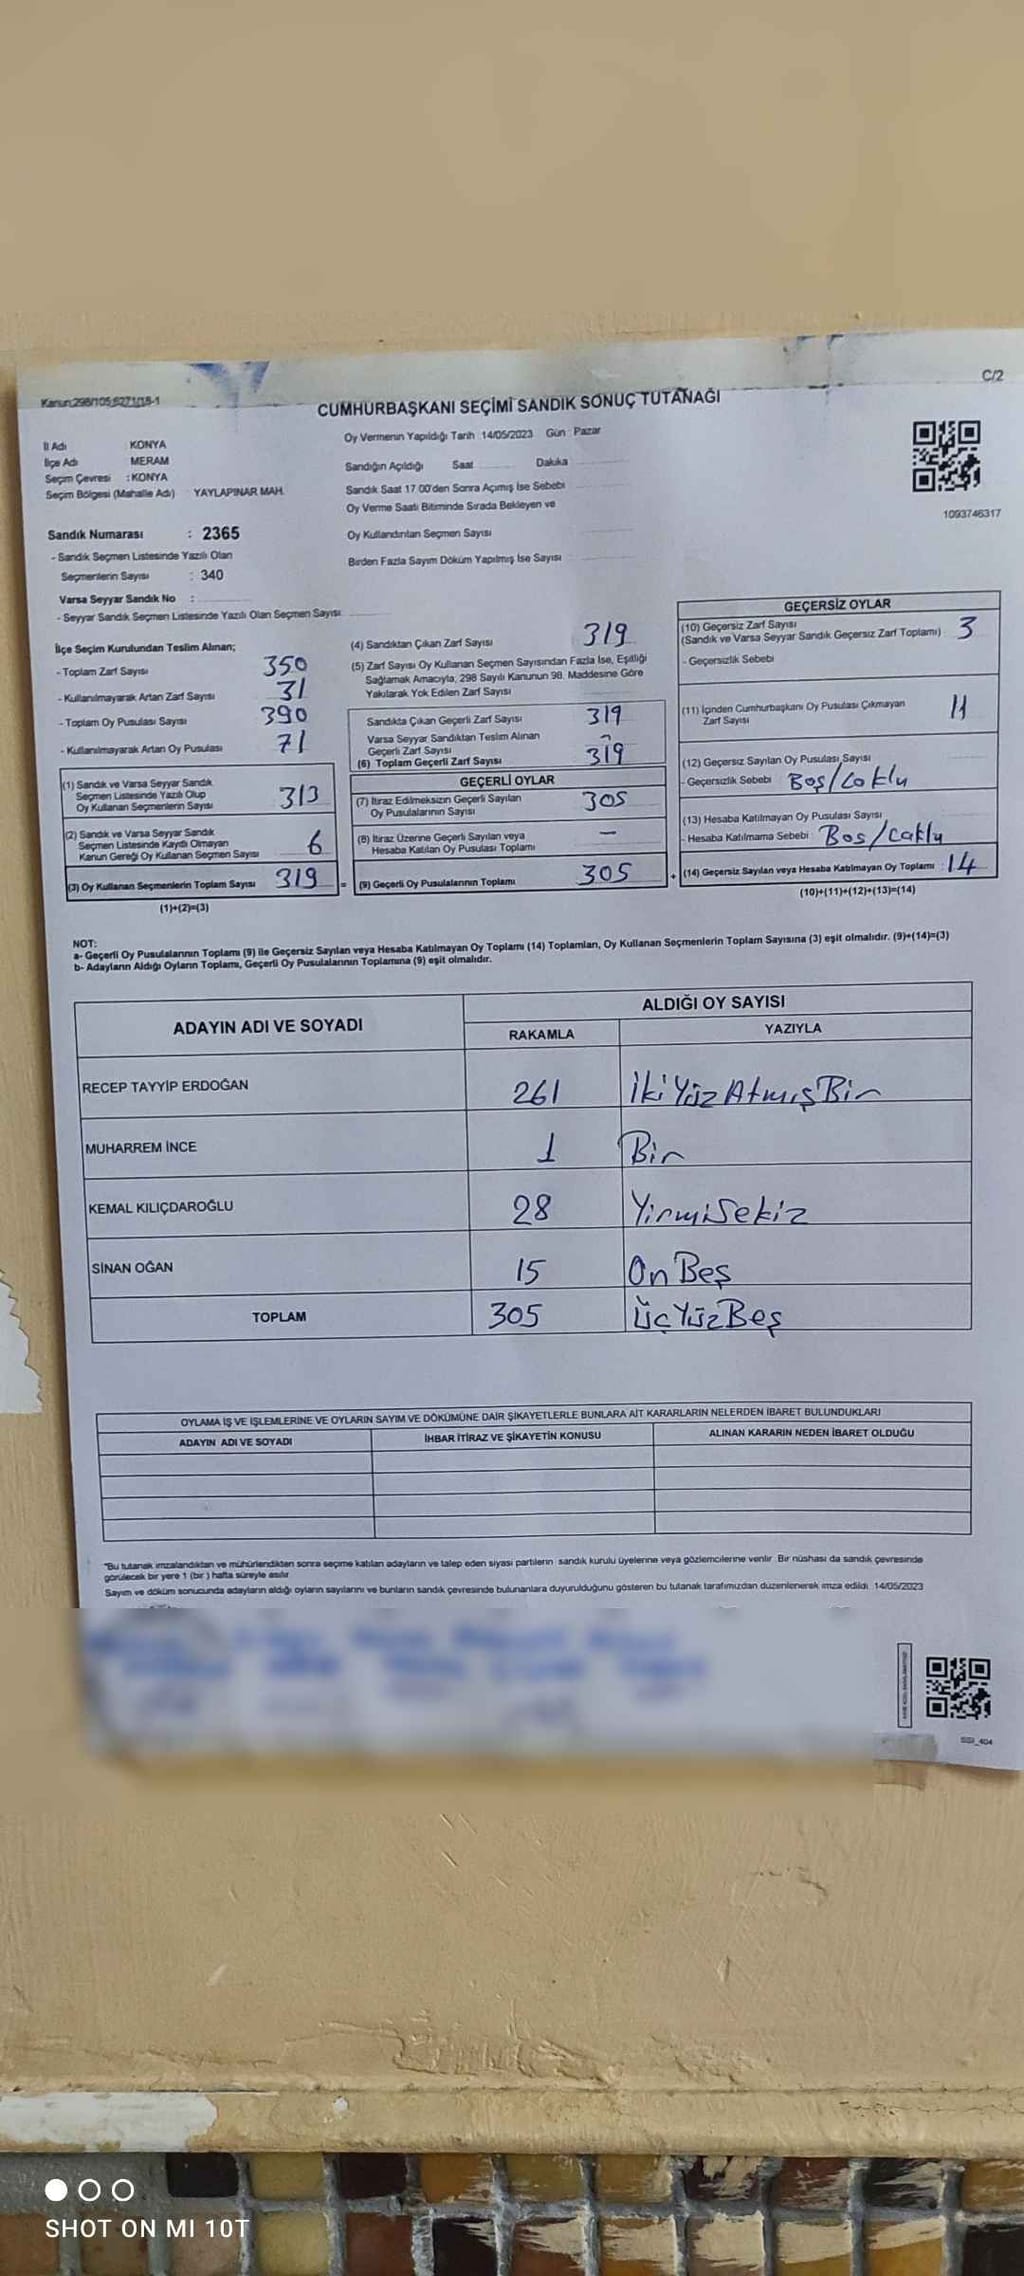 C/2
Kanun:298/105;6271/18-1
CUMHURBAŞKANI SEÇİMİ SANDIK SONUÇ TUTANAĞI
Oy Vermenin Yapıldığı Tarih :14/05/2023 Gün : Pazar
İl Adı KONYA
İlçe Adı MERAM
Seçim Çevresi : KONYA
Seçim Bölgesi (Mahalle Adı) YAYLAPINAR MAH.
Sandığın Açıldığı Saat Dakika
Sandık Saat 17:00'den Sonra Açımış İse Sebebi
Oy Verme Saati Bitiminde Sırada Bekleyen ve
Oy Kullandırılan Seçmen Sayısı
Birden Fazla Sayım Döküm Yapılmış İse Sayısı
1093746317
Sandık Numarası : 2365
- Sandık Seçmen Listesinde Yazılı Olan
Seçmenlerin Sayısı : 340
Varsa Seyyar Sandık No :
- Seyyar Sandık Seçmen Listesinde Yazılı Olan Seçmen Sayısı:
İlçe Seçim Kurulundan Teslim Alınan;
- Toplam Zarf Sayısı 350
- Kullanılmayarak Artan Zarf Sayısı 31
- Toplam Oy Pusulası Sayısı 390
- Kullanılmayarak Artan Oy Pusulası 71
(1) Sandık ve Varsa Seyyar Sandık
Seçmen Listesinde Yazılı Olup
Oy Kullanan Seçmenlerin Sayısı 313
(2) Sandık ve Varsa Seyyar Sandık
Seçmen Listesinde Kaydı Olmayan
Kanun Gereği Oy Kullanan Seçmen Sayısı 6
(3) Oy Kullanan Seçmenlerin Toplam Sayısı 319 =
(1)+(2)=(3)
(4) Sandıktan Çıkan Zarf Sayısı 319
(5) Zarf Sayısı Oy Kullanan Seçmen Sayısından Fazla İse, Eşitliği
Sağlamak Amacıyla, 298 Sayılı Kanunun 98. Maddesine Göre
Yakılarak Yok Edilen Zarf Sayısı
Sandıkta Çıkan Geçerli Zarf Sayısı 319
Varsa Seyyar Sandıktan Teslim Alınan
Geçerli Zarf Sayısı
(6) Toplam Geçerli Zarf Sayısı 319
GEÇERLİ OYLAR
(7) İtiraz Edilmeksizin Geçerli Sayılan
Oy Pusulalarının Sayısı 305
(8) İtiraz Üzerine Geçerli Sayılan veya
Hesaba Katılan Oy Pusulası Toplamı –
(9) Geçerli Oy Pusulalarının Toplamı 305 +
GEÇERSİZ OYLAR
(10) Geçersiz Zarf Sayısı
(Sandık ve Varsa Seyyar Sandık Geçersiz Zarf Toplamı) 3
- Geçersizlik Sebebi
(11) İçinden Cumhurbaşkanı Oy Pusulası Çıkmayan
Zarf Sayısı 11
(12) Geçersiz Sayılan Oy Pusulası Sayısı
- Geçersizlik Sebebi Boş/Coklu
(13) Hesaba Katılmayan Oy Pusulası Sayısı
- Hesaba Katılmama Sebebi Bos/Coklu
(14) Geçersiz Sayılan veya Hesaba Katılmayan Oy Toplamı : 14
(10)+(11)+(12)+(13)=(14)
NOT:
a- Geçerli Oy Pusulalarının Toplamı (9) ile Geçersiz Sayılan veya Hesaba Katılmayan Oy Toplamı (14) Toplamları, Oy Kullanan Seçmenlerin Toplam Sayısına (3) eşit olmalıdır. (9)+(14)=(3)
b- Adayların Aldığı Oyların Toplamı, Geçerli Oy Pusulalarının Toplamına (9) eşit olmalıdır.
ADAYIN ADI VE SOYADI ALDIĞI OY SAYISI
RAKAMLA YAZIYLA
RECEP TAYYİP ERDOĞAN 261 İki Yüz Atmış Bir
MUHARREM İNCE 1 Bir
KEMAL KILIÇDAROĞLU 28 Yirmi Sekiz
SİNAN OĞAN 15 On Beş
TOPLAM 305 Üç Yüz Beş
OYLAMA İŞ VE İŞLEMLERİNE VE OYLARIN SAYIM VE DÖKÜMÜNE DAİR ŞİKAYETLERLE BUNLARA AİT KARARLARIN NELERDEN İBARET BULUNDUKLARI
ADAYIN ADI VE SOYADI İHBAR İTİRAZ VE ŞİKAYETİN KONUSU ALINAN KARARIN NEDEN İBARET OLDUĞU
"Bu tutanak imzalandıktan ve mühürlendikten sonra seçime katılan adayların ve talep eden siyasi partilerin sandık kurulu üyelerine veya gözlemcilerine verilir. Bir nüshası da sandık çevresinde
görülecek bir yere 1 (bir ) hafta süreyle asılır.
Sayım ve döküm sonucunda adayların aldığı oyların sayılarını ve bunların sandık çevresinde bulunanlara duyurulduğunu gösteren bu tutanak tarafımızdan düzenlenerek imza edildi. 14/05/2023
SSI_404
SHOT ON MI 10T